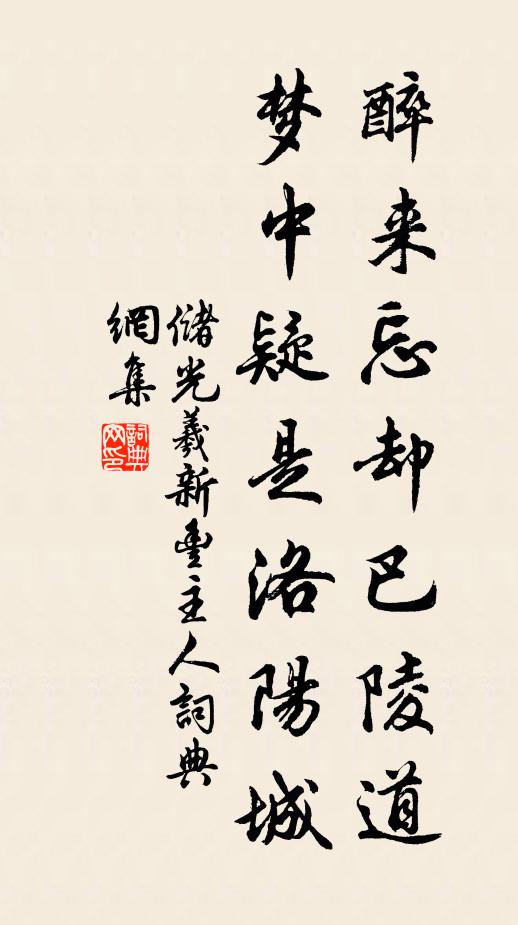 醉来忘却巴陵道
梦中疑是洛陽城
儲光羲新豐主人詞典
網集
詞典網印